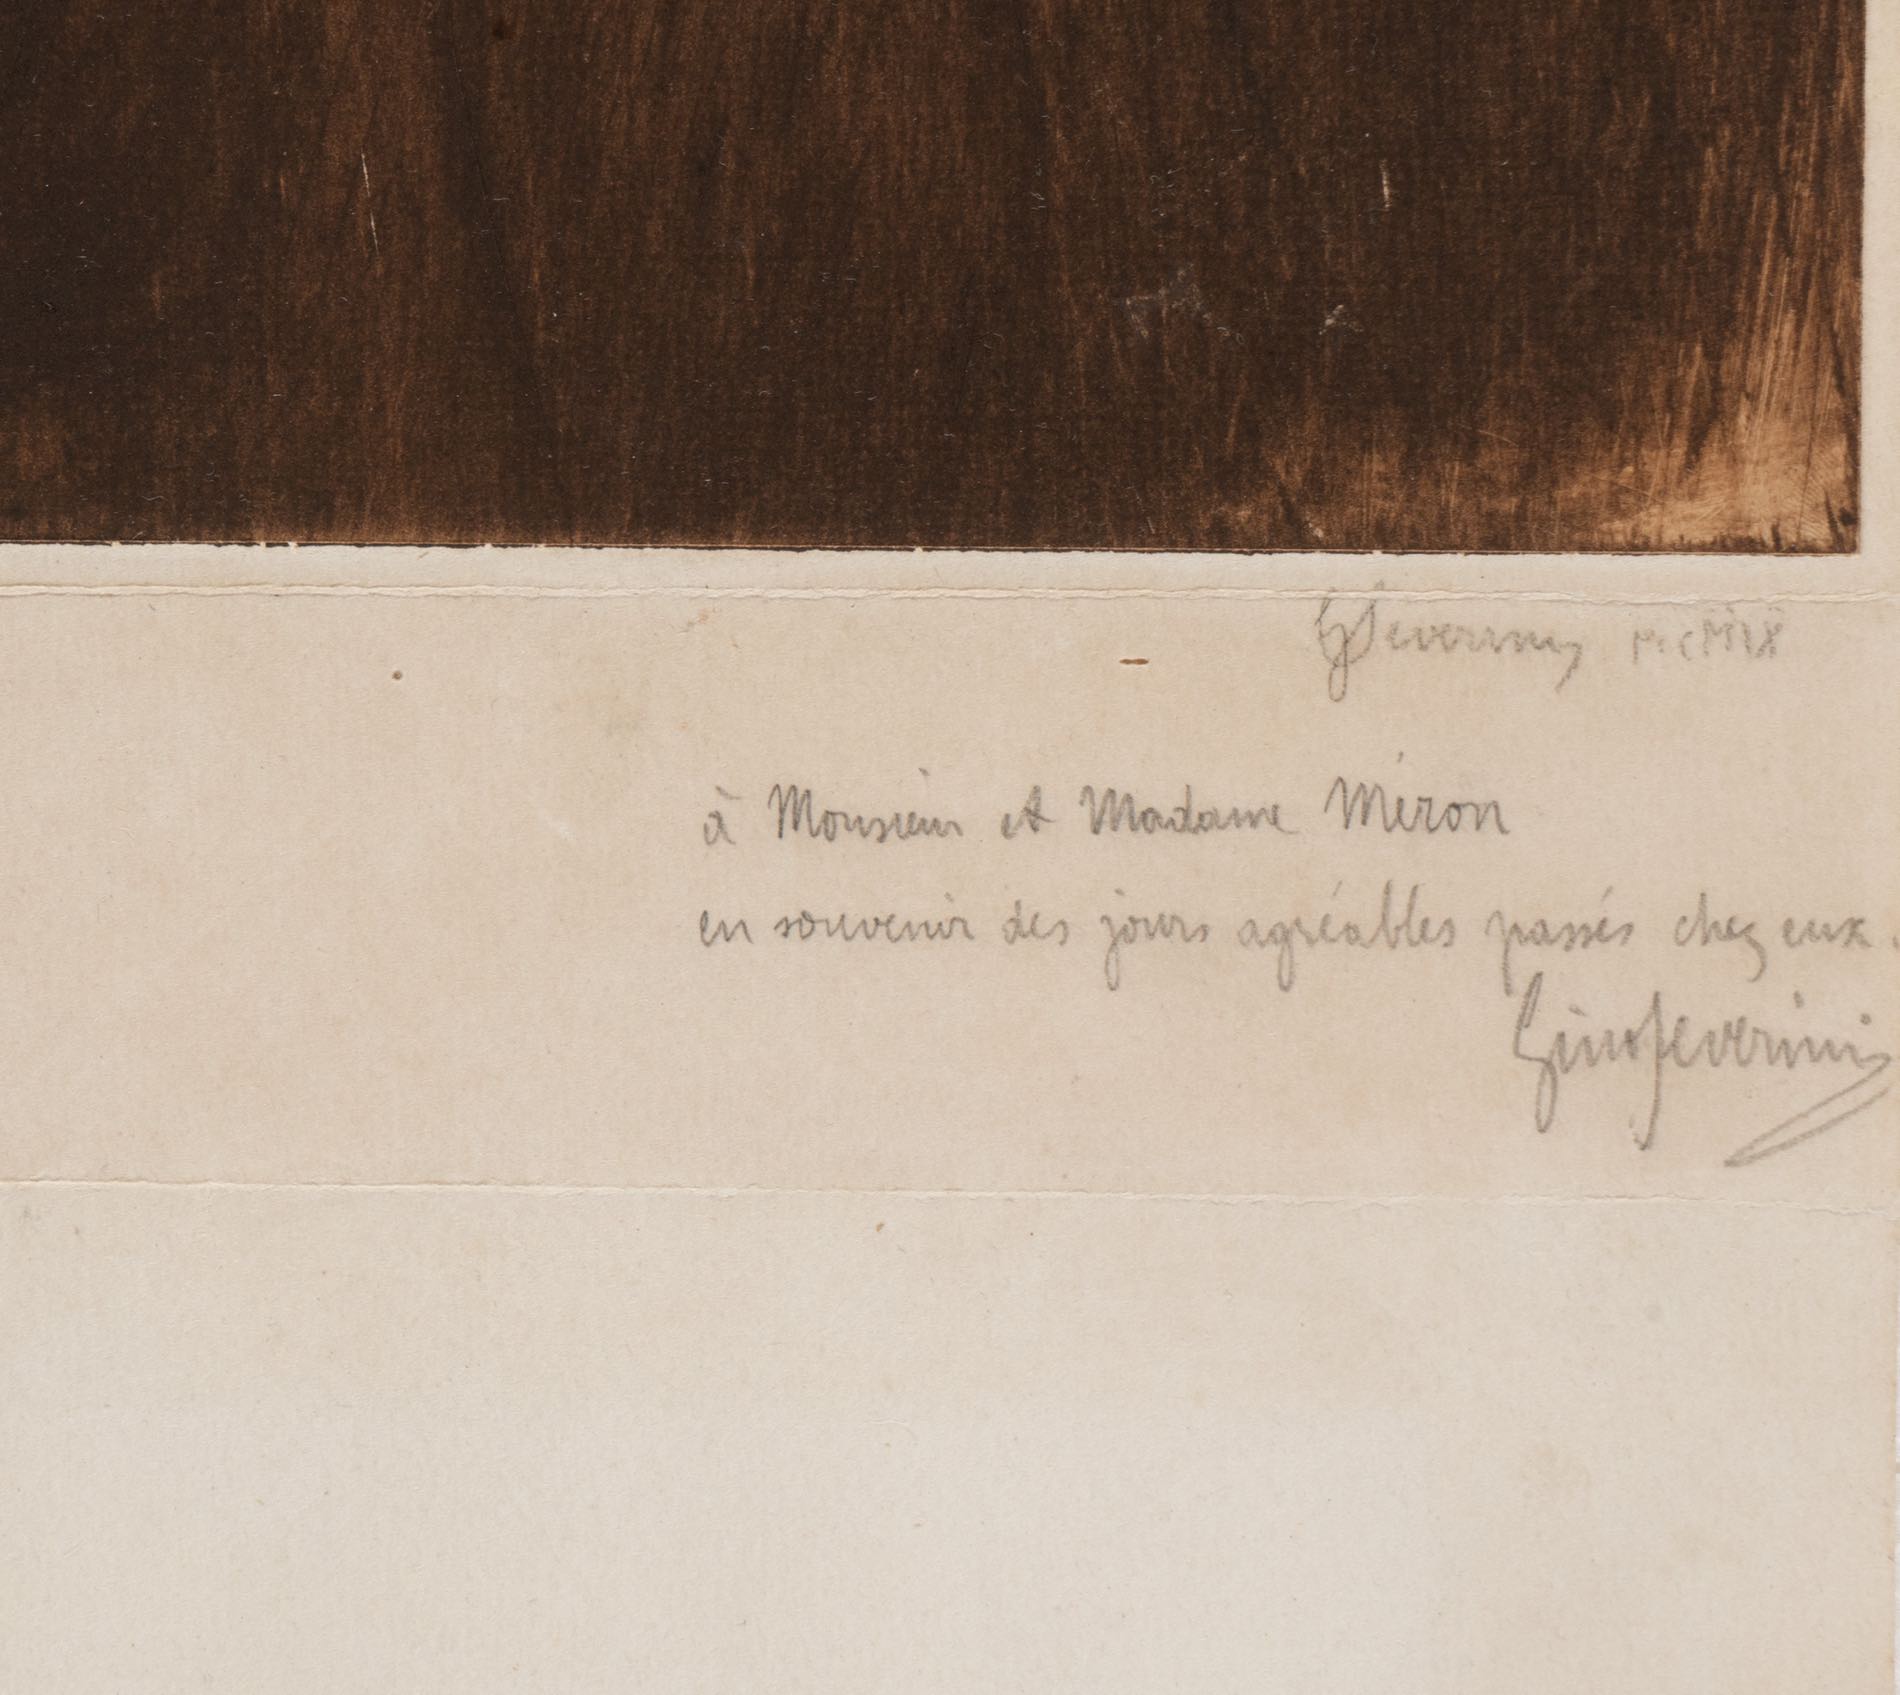 GSeverini MCMIX
à Monsieur et Madame Méron
en souvenir des jours agréables passés chez eux.
Gino Severini